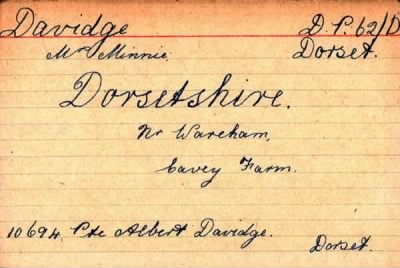 Davidge D. P. 62/D
Mrs Minnie. Dorset.
Dorsetshire.
Nr Wareham,
Cavey Farm.
10694, Pte Albert Davidge.
Dorset.